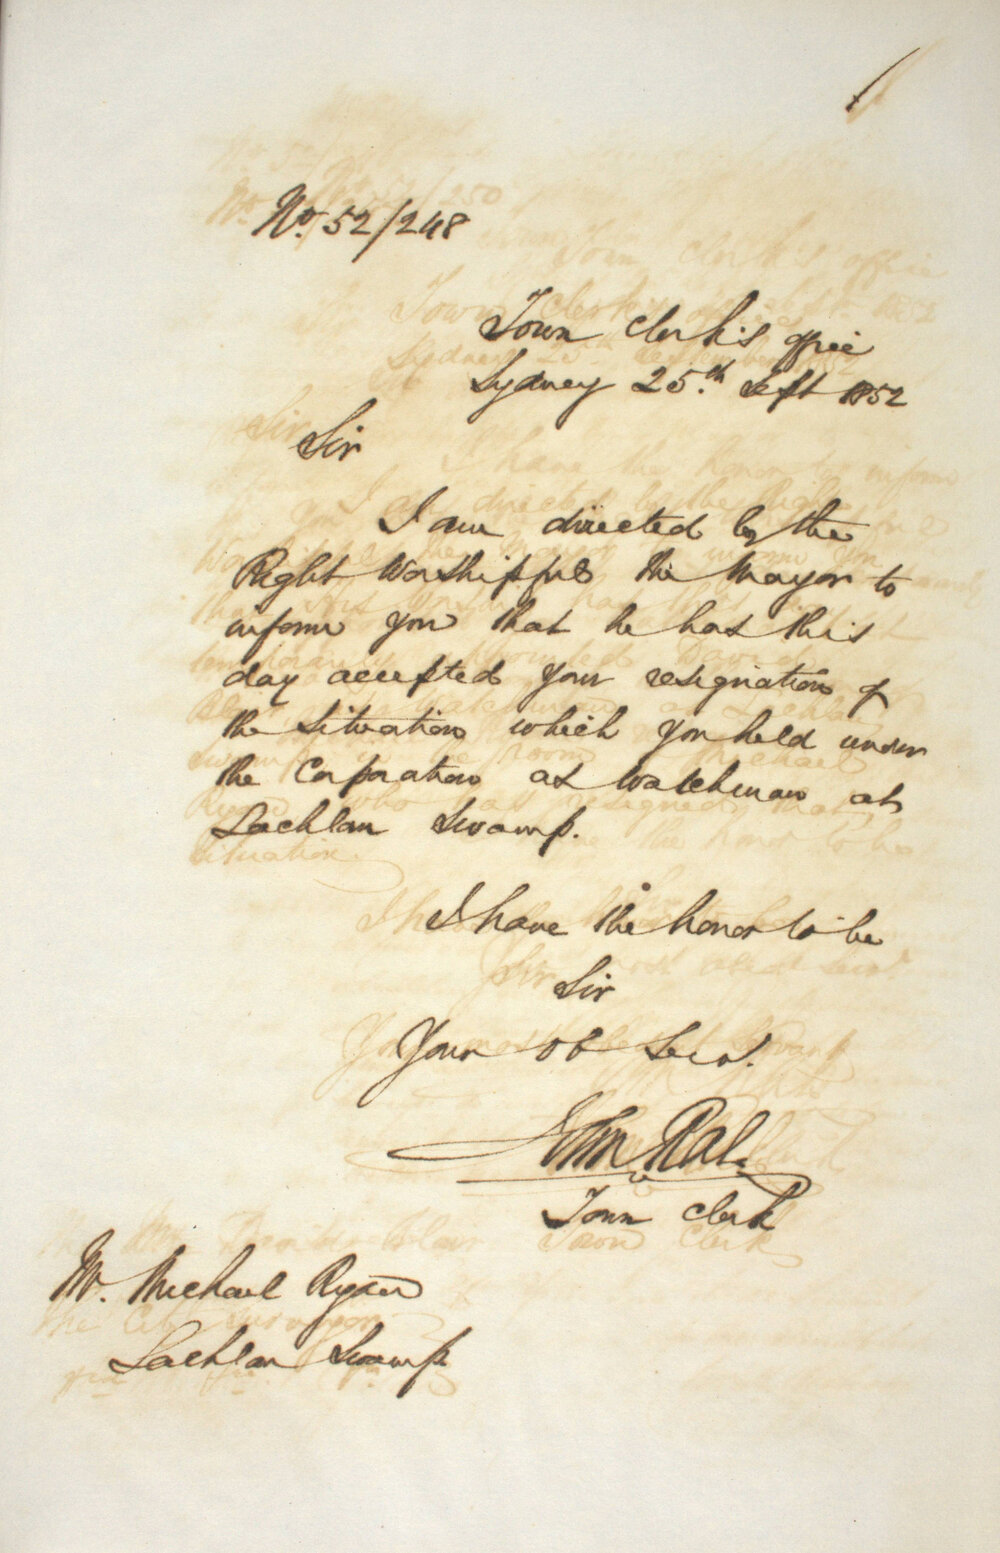 No. 52/248
Town Clerk's office
Sydney 25th. Sept 1852
Sir
I am directed by the
Right Worshipful the Mayor to
inform you that he has this
day accepted your resignation of
the situation which you held under
the Corporation as Watchman at
Lachlan Swamp.
I have the honor to be
Sir
Your ob Servt.
John Rae
Town Clerk
Mr. Michael Ryan
Lachlan Swamp